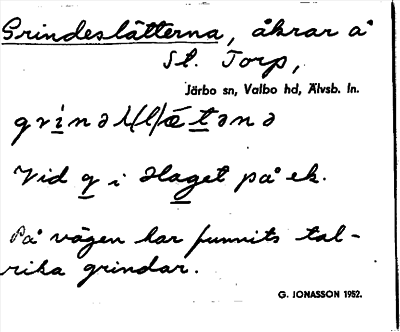 Grindeslätterna, åkrar å
St. Torp,
Järbo sn, Valbo hd, Älvsb. ln.
Vid q i Haget på ek.
På vägen har funnits tal-
rika grindar.
G. JONASSON 1952.